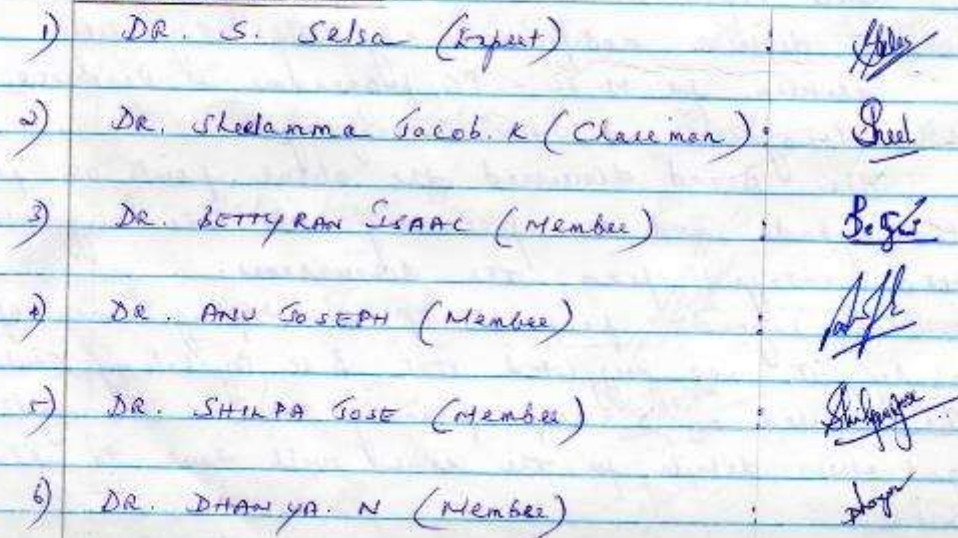 1) DR. S. Selsa (Expert) :
2) DR. Sheelamma Jacob. K (Chairman) : Sheel
3) DR. BETTY RAN ISAAC (Member) :
4) DR. ANU JOSEPH (Member) :
5) DR. SHILPA JOSE (Member) : Shilpa Jose
6) DR. DHANYA. N (Member) : Dhanya